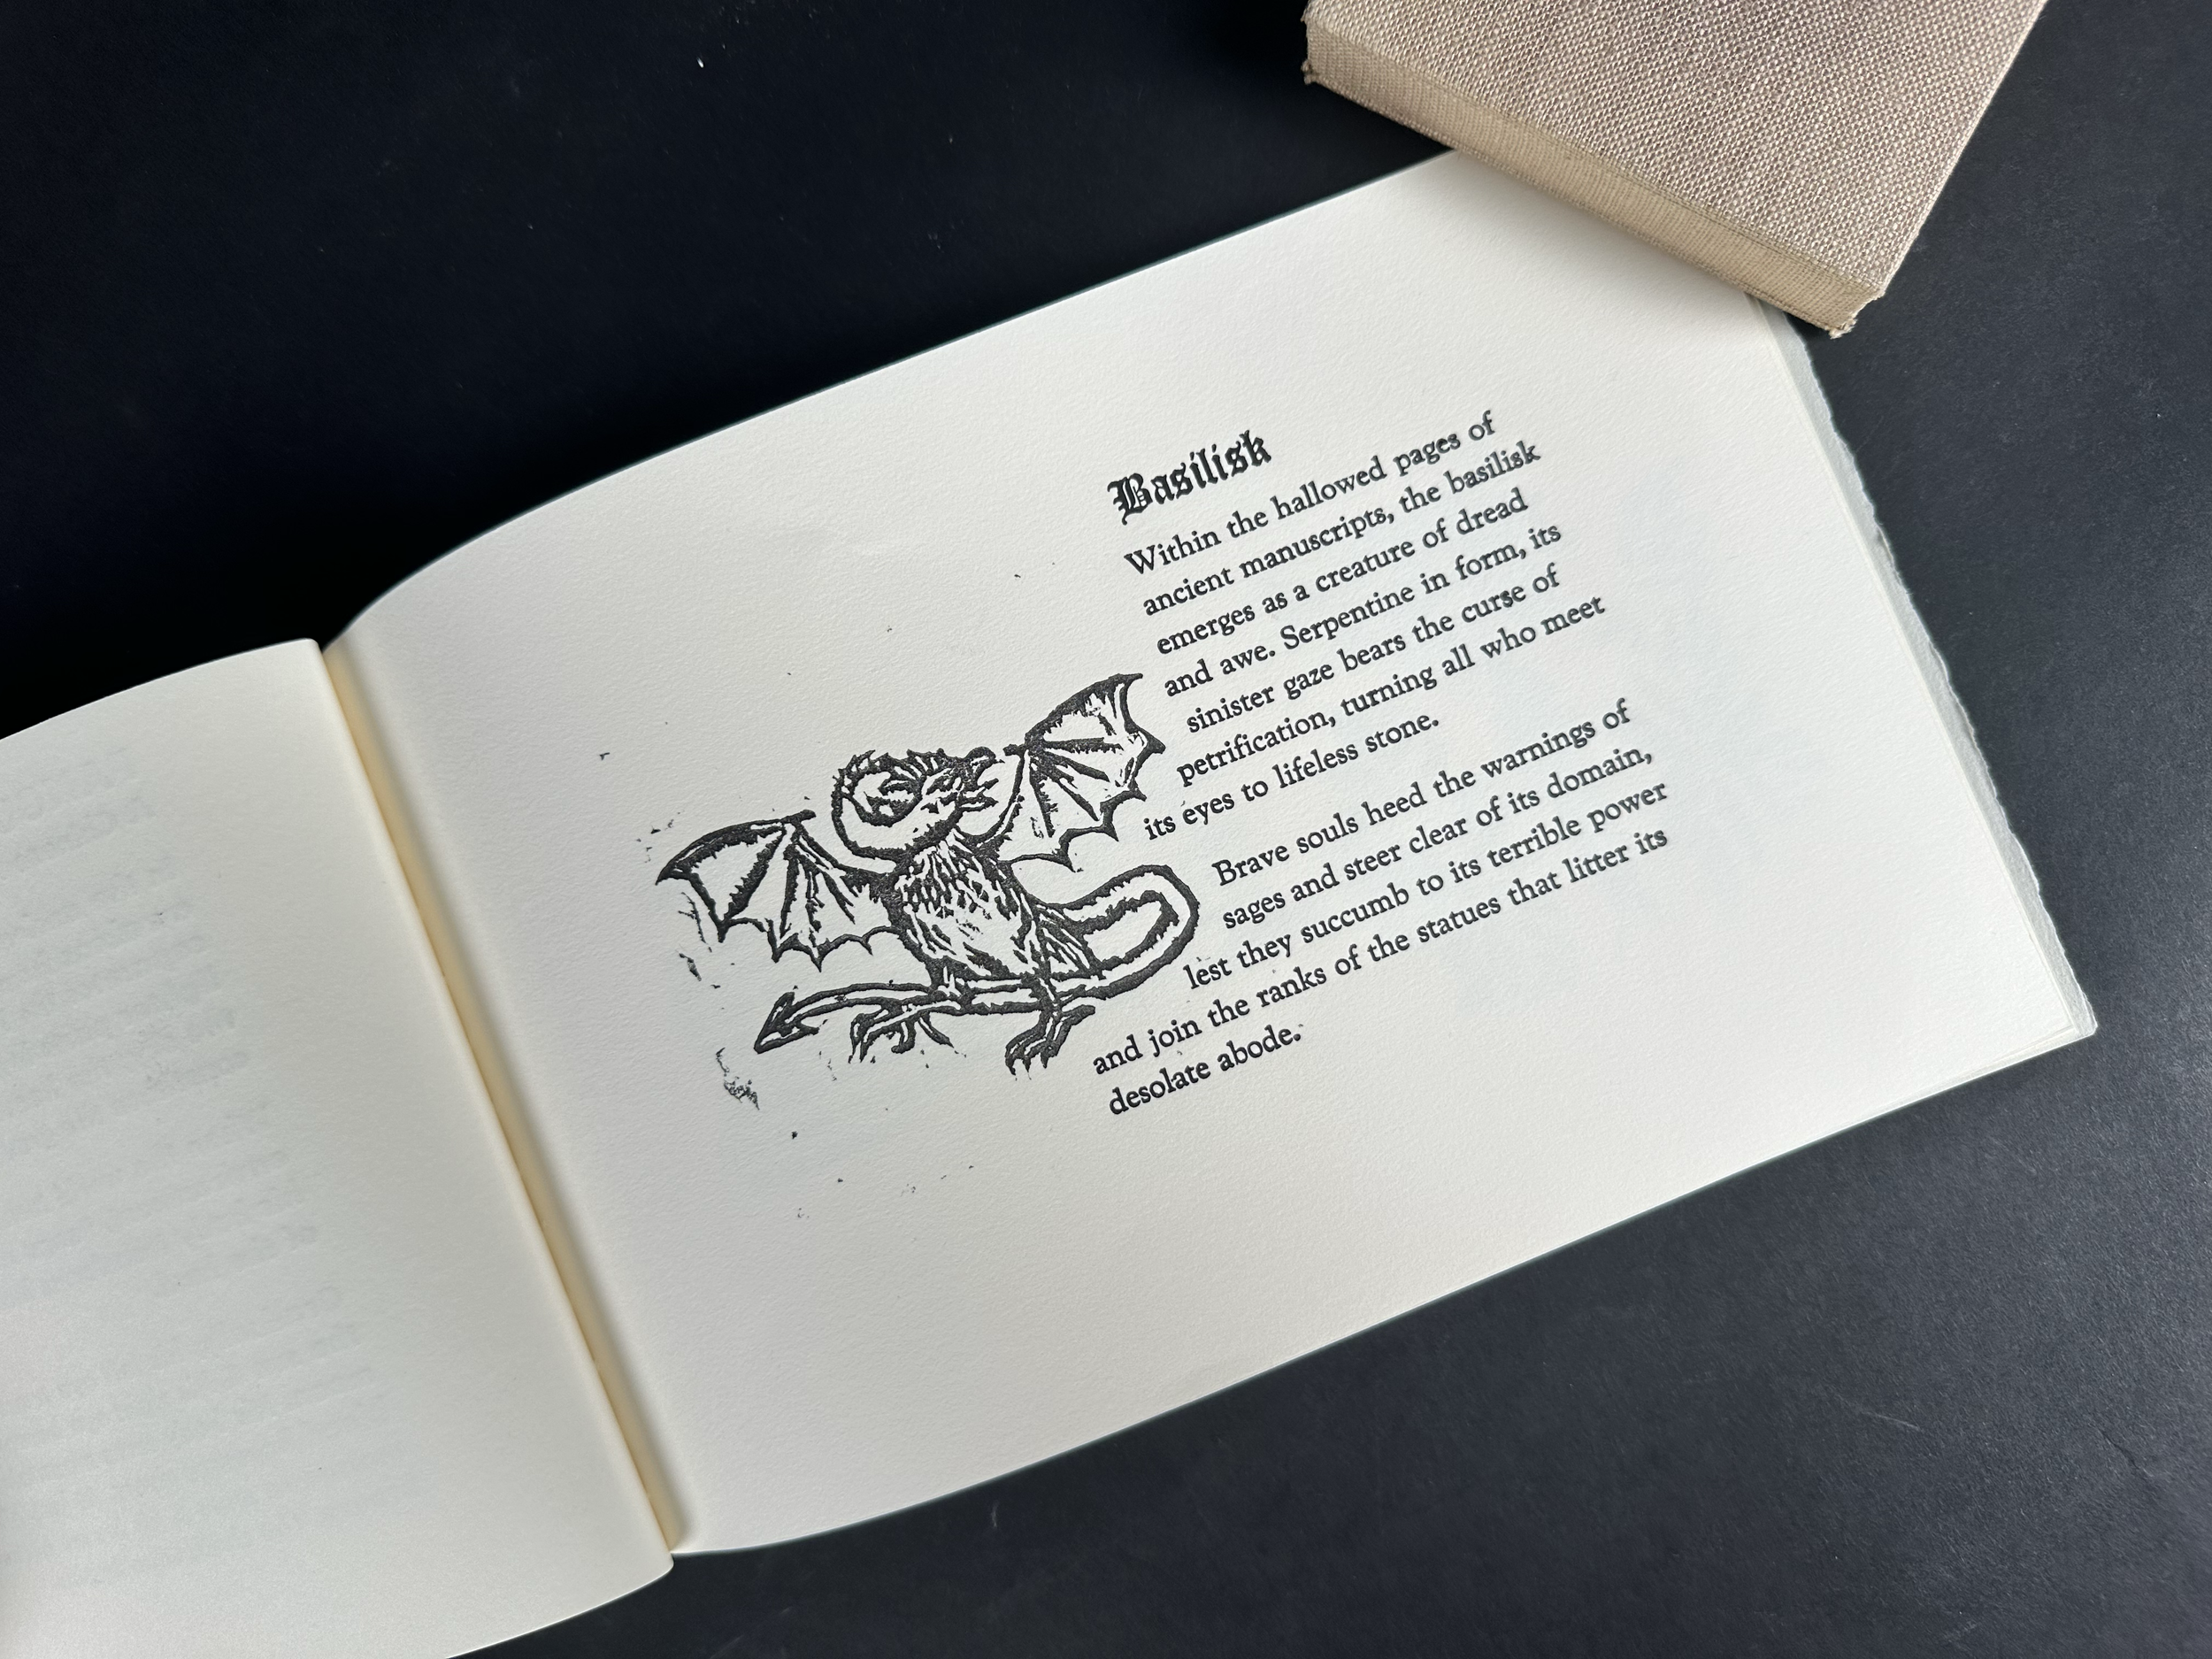 Basilisk
Within the hallowed pages of
ancient manuscripts, the basilisk
emerges as a creature of dread
and awe. Serpentine in form, its
sinister gaze bears the curse of
petrification, turning all who meet
its eyes to lifeless stone.
Brave souls heed the warnings of
sages and steer clear of its domain,
lest they succumb to its terrible power
and join the ranks of the statues that litter its
desolate abode.